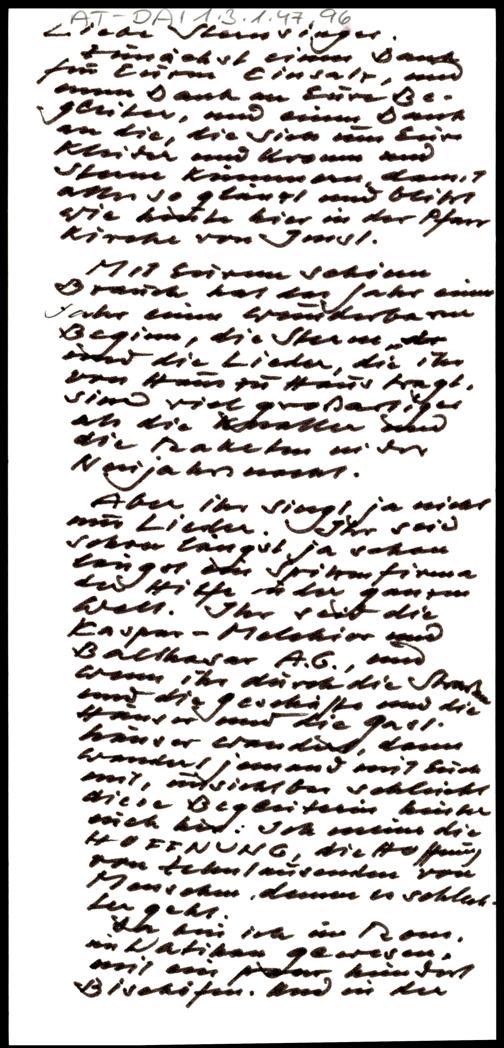 AT-DAI 1.3.1.47.96
Liebe Sternsinger.
Zunächst einen Dank
für Euren Einsatz, und
einen Dank an Eure Be-
gleiter, und einen Dank
an die, die sich um Eure
Kleider und Kronen und
Sterne kümmern damit
alles so glänzt und bleibt
wie heute hier in der Pfarr
kirche von Imst.
Mit Eurem schönen
Brauch hat das Jahr einen
Jahr einen wunderbaren
Beginn, die Sterne, der
und die Lieder, die ihr
von Haus zu Haus tragt,
sind viel großartiger
als die Knaller und
die Raketen in der
Neujahrsnacht.
Aber ihr singt ja nicht
nur Lieder. Ihr seid
schon längst ja schon
längst die Spitzenfirma
der Hilfe in der ganzen
Welt. Ihr seid die
Kaspar-Melchior und
Balthasar A.G., und
wenn ihr durch die Straßen
und die Geschäfte und die
Häuser und die Gast-
häuser wandert, dann
wandert jemand mit Euch
mit, unsichtbar schleicht
diese Begleiterin hinter
euch her: Ich meine die
HOFFNUNG, die Hoffnung
von zehntausenden von
Menschen, denen es schlech-
ter geht.
Da bin ich in Rom,
im Vatikan gewesen,
mit ein paar hundert
Bischöfen. Und in der